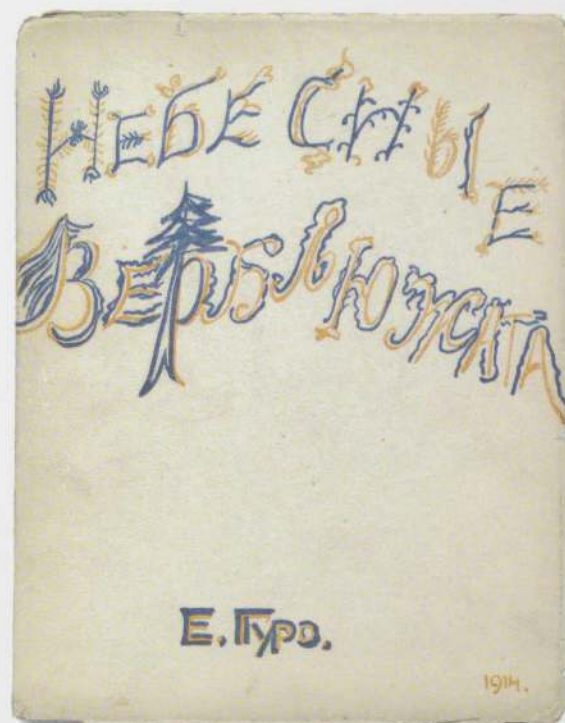 НЕБЕСНЫЕ
ВЕРБЛЮЖАТА
Е. Гуро.
1914.